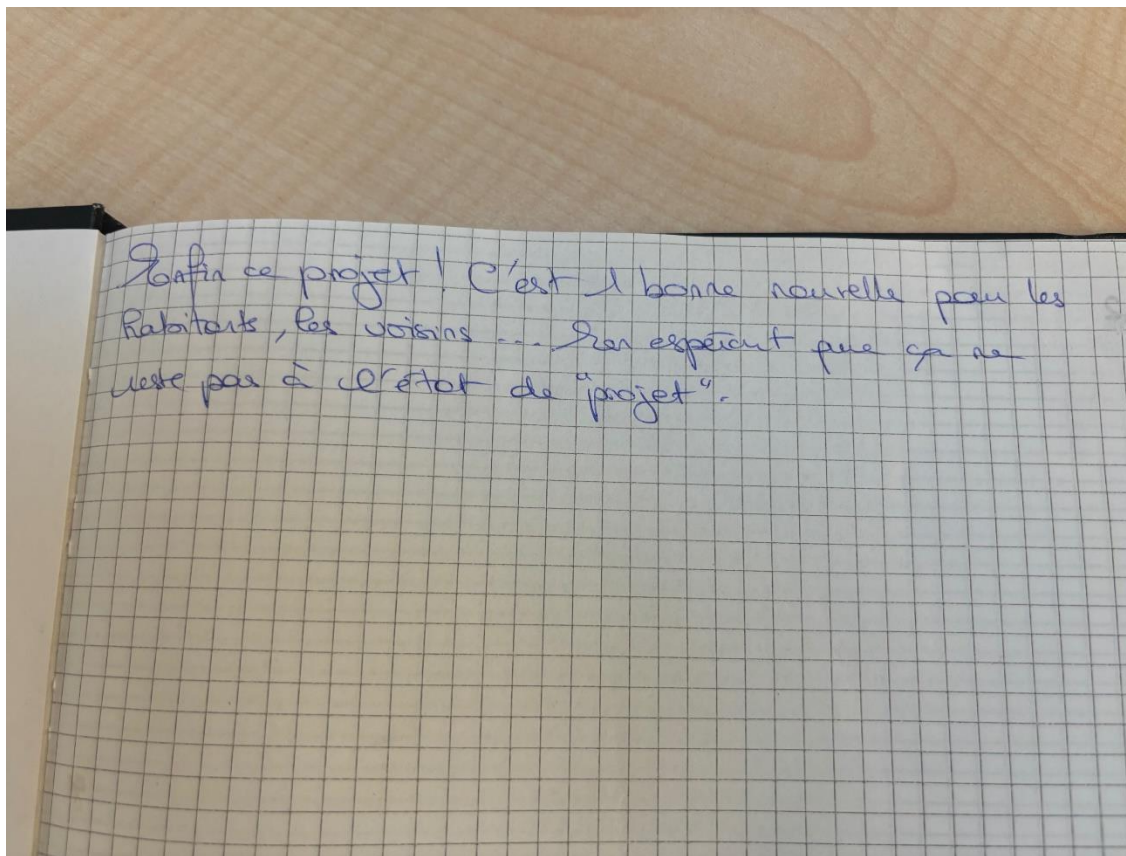 Enfin ce projet ! C'est 1 bonne nouvelle pour les
habitants, les voisins .... En espérant que ça ne
reste pas à l'état de "projet".